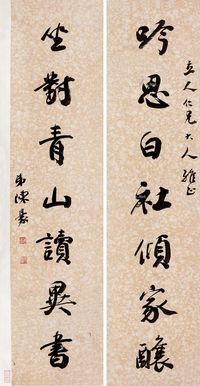 立人仁兄大人雅正
吟思白社傾家釀
坐對青山讀異書
弟陳豪